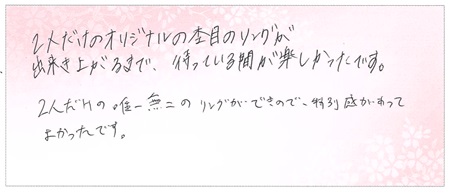 2人だけのオリジナルの杢目のリングが
出来き上がるまで、待っている間が楽しかったです。
2人だけの唯一無二のリングができので、特別感があって
よかったです。